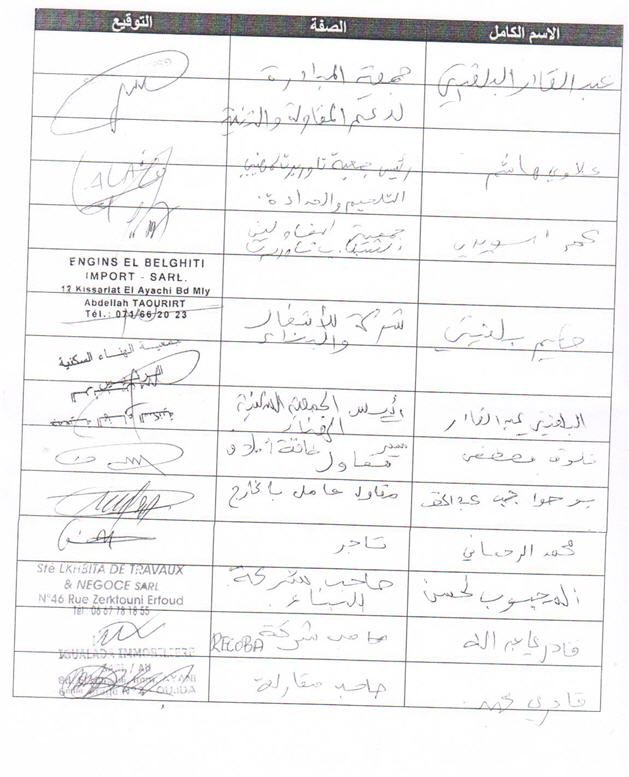 الاسم الكامل الصفة التوقيع
عبد القادر البلغيتي جمعية المبادرة
لدعم المقاولة والتنمية
علاوي هاشم رئيس جمعية تاوريرت لمهنيي
التلحيم والحدادة
محمد السويدي جمعية المقاولين
الشباب بتاوريرت
ENGINS EL BELGHITI
IMPORT - SARL.
12 Kissariat El Ayachi Bd Mly
Abdellah TAOURIRT
Tél.: 071/66 20 23
حكيم بلغيتي شركة للأشغال
والبناء
جمعية الهناء السكنية
البلغيتي عبد القادر رئيس الجمعية السكنية
الهناء
مصطفى
مقاول
مقاول عامل بالخارج
محمد الرحماني تاجر
Sté LKHBITA DE TRAVAUX
& NEGOCE SARL
N°46 Rue Zerktouni Erfoud
Tél 06 67 78 18 55
لحسن صاحب شركة
البناء
قادري عبد الله صاحب شركة RECOBA
IGUALADA IMMOBILIERE
قادري محمد صاحب مقاولة
OUJDA